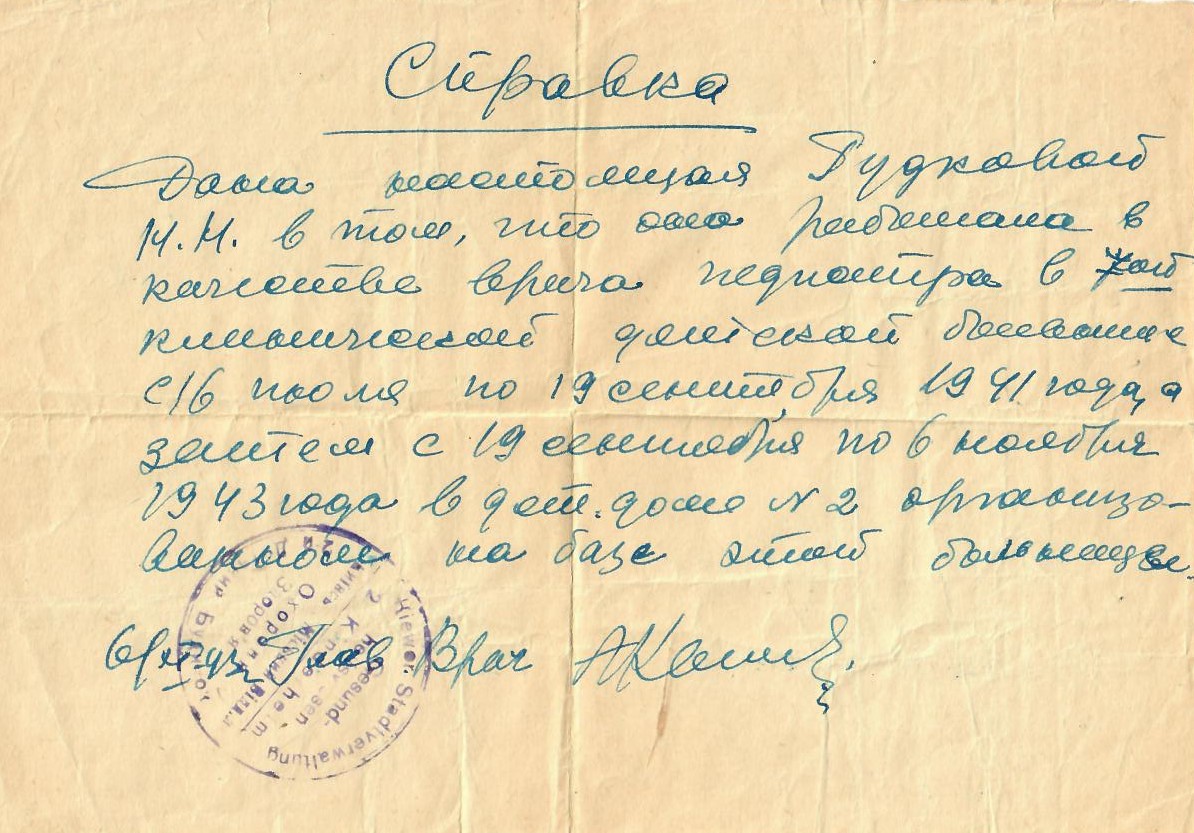 Справка
Дана настоящая Гудковой
М.М. в том, что она работала в
качестве врача педиатра в
клинической детской больнице
с 16 июля по 19 сентября 1941 года, а
затем с 19 сентября по 6 ноября
1943 года в дет. доме № 2 организо-
ванном на базе этой больницы.
6/XI-43 Глав Врач
Kiewer Stadtverwaltung
Gesund-
Охорони
Здоровя